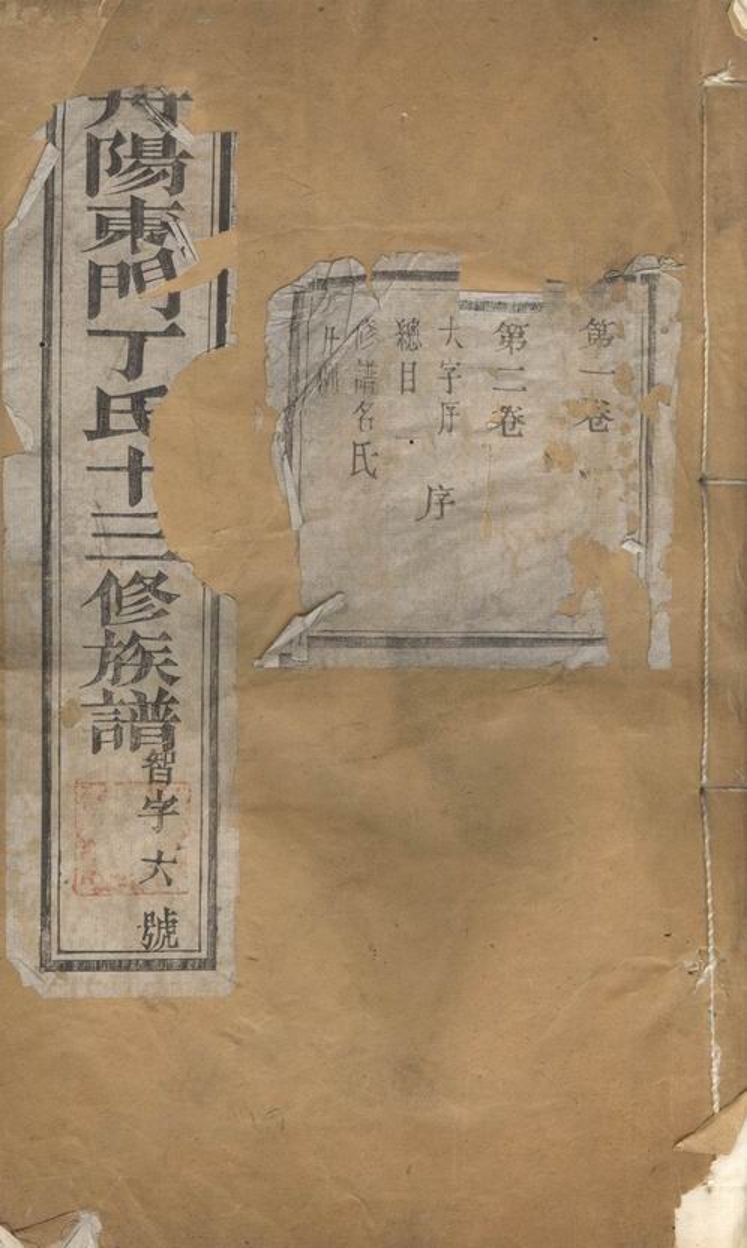 第一卷
第二卷
大字序
序
總目
修譜名氏
凡例
丹陽東門丁氏十三修族譜
智字六號